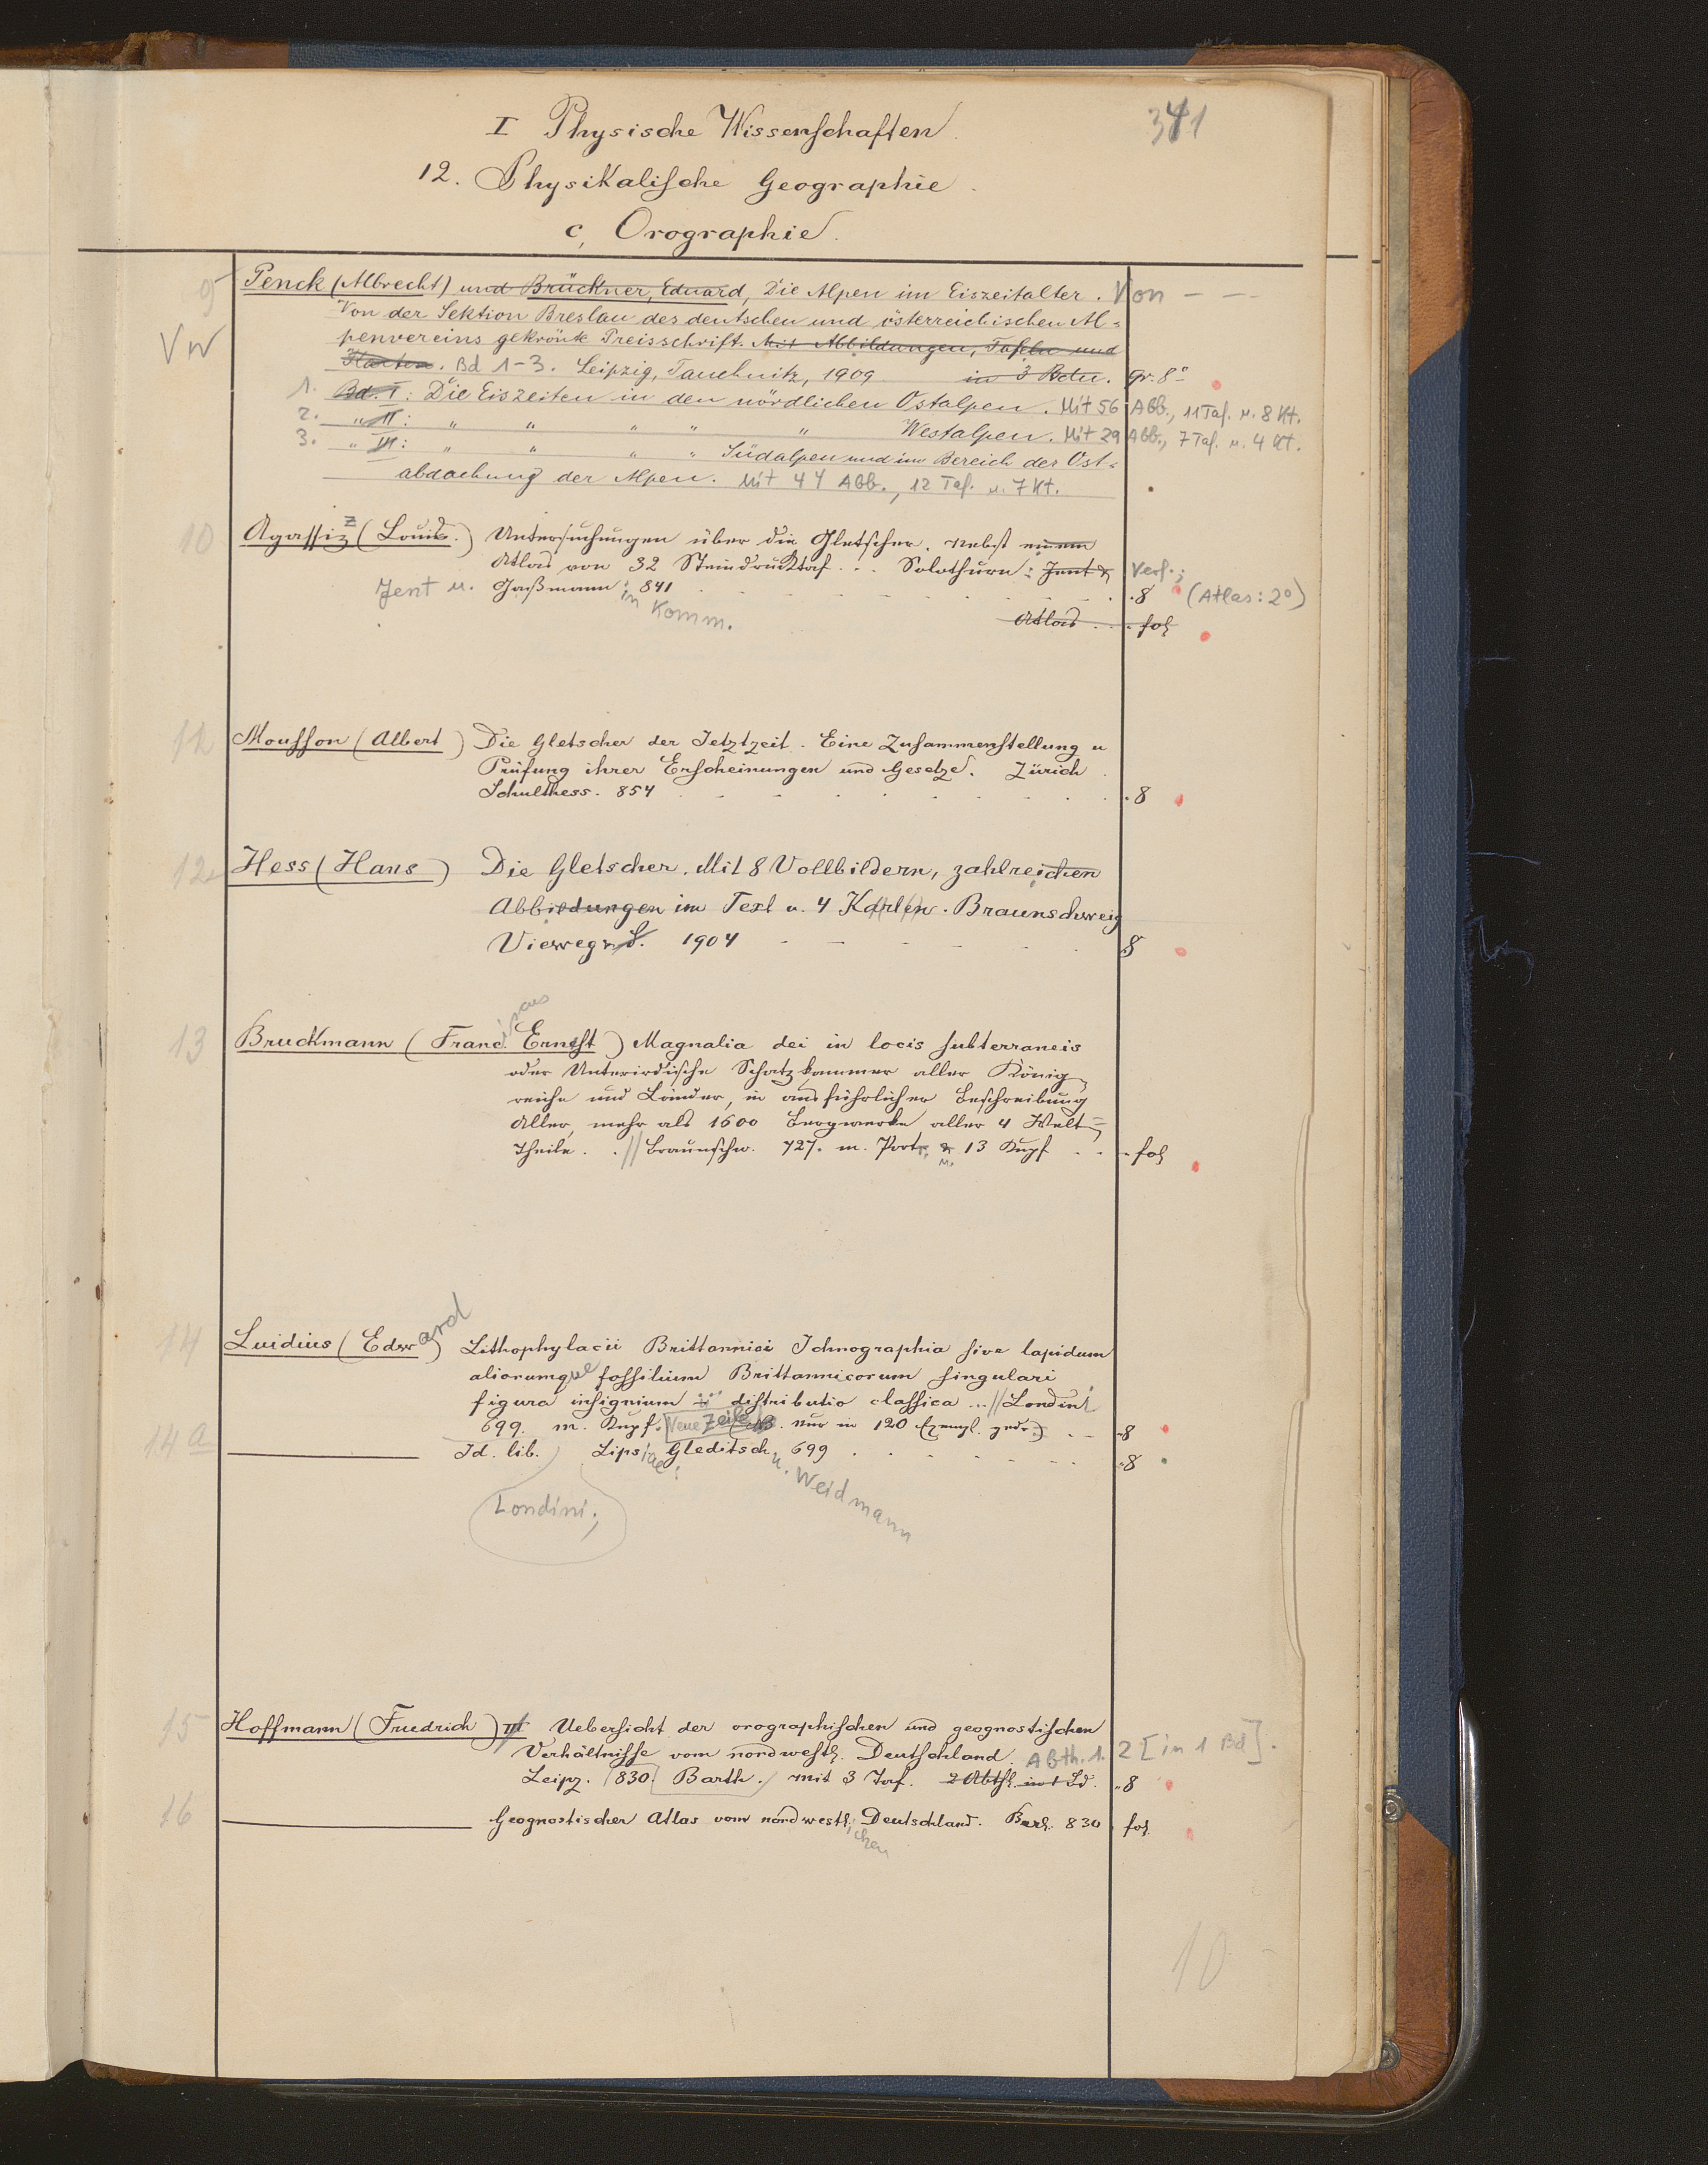 341
I Physische Wissenschaften.
12. Physikalische Geographie.
c, Orographie.
9 Penck (Albrecht) und Brückner, Eduard, Die Alpen im Eiszeitalter. Von — —
VW Von der Sektion Breslau des deutschen und österreichischen Al=
penvereins gekrönte Preisschrift. Mit Abbildungen, Tafeln und
Karten. Bd 1-3. Leipzig, Tauchnitz, 1909 in 3 Bdn. gr. 8°
1. Bd. I: Die Eiszeiten in den nördlichen Ostalpen. Mit 56 Abb., 11 Taf. u. 8 Kt.
2. " II: " " " " " Westalpen. Mit 29 Abb., 7 Taf. u. 4 Kt.
3. " III: " " " " Südalpen und im Bereich der Ost=
abdachung der Alpen. Mit 44 Abb., 12 Taf. u. 7 Kt.
10 Agassiz (Louis.) Untersuchungen über die Gletscher. Nebst einem
Atlas von 32 Steindrucktaf... Solothurn: Jent & Verf.;
Jent u. Gaßmann in Komm. 841 . 8 (Atlas: 2°)
Atlas . . . fol
11 Mousson (Albert) Die Gletscher der Jetztzeit. Eine Zusammenstellung u
Prüfung ihrer Erscheinungen und Gesetze. Zürich
Schulthess. 854 . 8
12 Hess (Hans) Die Gletscher. Mit 8 Vollbildern, zahlreichen
Abbildungen im Text u. 4 Karten. Braunschweig
Vieweg u. S. 1904 8
13 Bruckmann (Franc. iscus Ernest) Magnalia dei in locis subterraneis
oder Unterirdische Schatzkammer aller König=
reiche und Länder, in ausführlicher Beschreibung
Aller, mehr als 1600 Bergwerke aller 4 Welt=
Theile. . // Braunschw. 727. m. Portr. & 13 Kupf . . . fol
14 Luidius (Edward) Lithophylacii Brittannici Ichnographia sive lapidum
aliorumque fossilium Brittannicorum singulari
figura insignium ... distributio classica ... // Londini
699. m. Kupf. Neue Zeile nur in 120 Exempl. gedr.) . . 8
14a ——— Id. lib. Londini; Lipsiae: Gleditsch u. Weidmann 699 . 8
15 Hoffmann (Friedrich) III Uebersicht der orographischen und geognostischen
Verhältnisse vom nordwestl. Deutschland. Abth. 1. 2 [in 1 Bd].
Leipz. 830. Barth. mit 3 Taf. 2 Abth. in 1 Bd. . 8
16 ——— Geognostischer Atlas vom nordwestlichen Deutschland. Berl. 830 fol
10